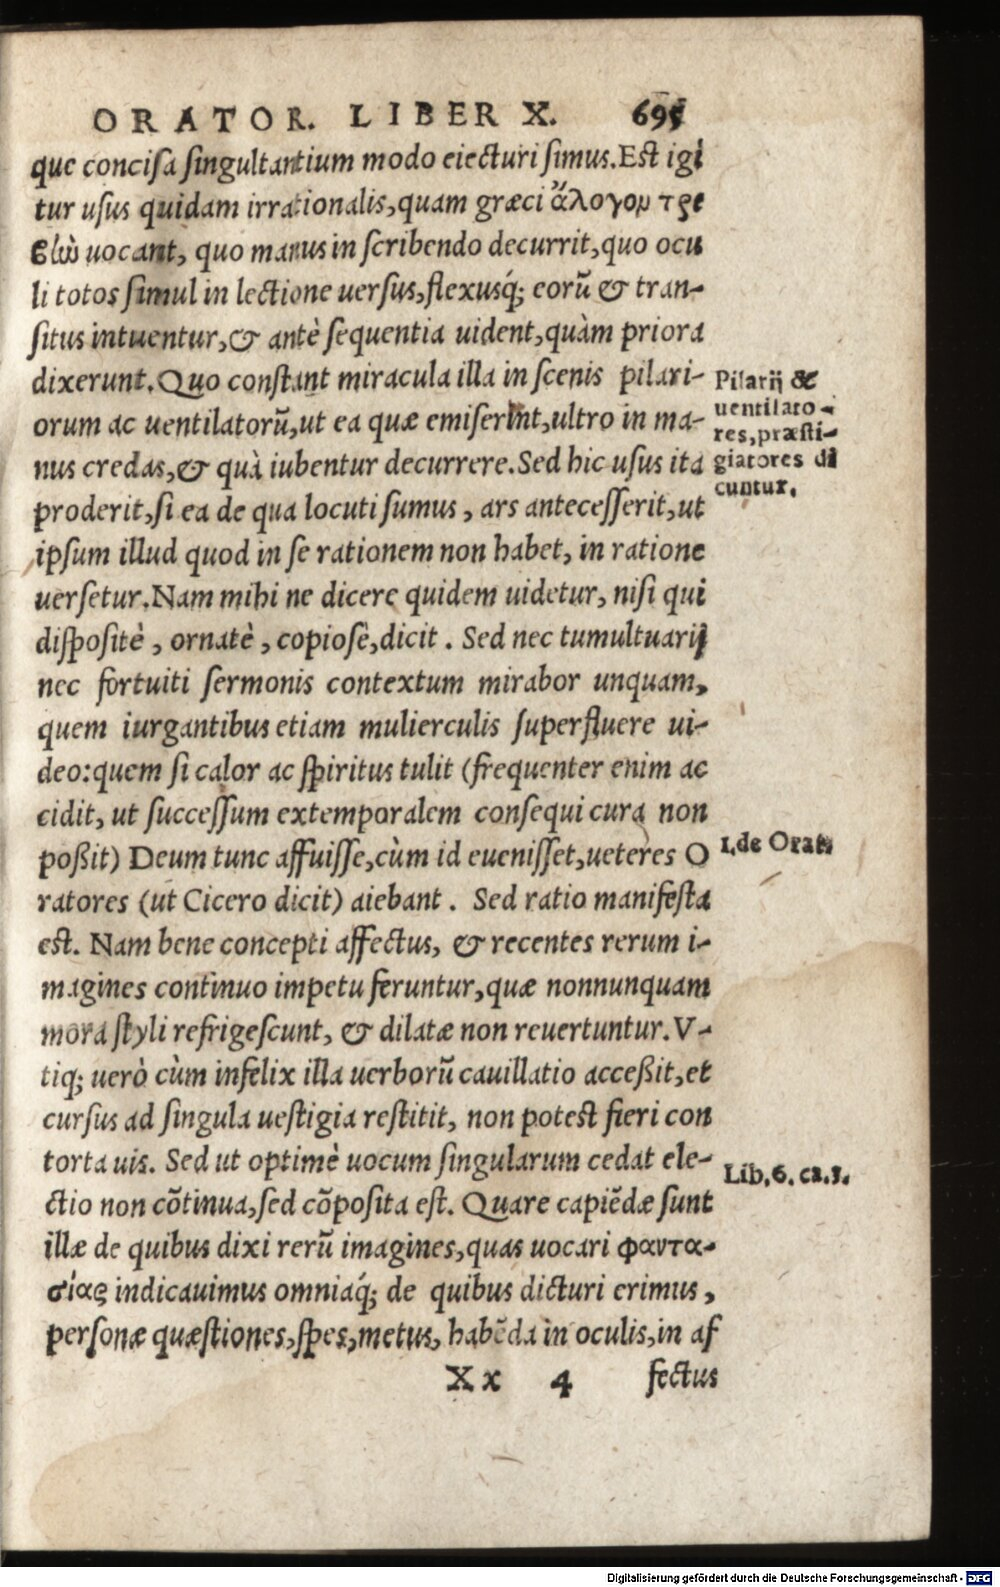 ORATOR. LIBER X. 695
que concisa singultantium modo eiecturi simus. Est igi
tur usus quidam irrationalis, quam græci ἄλογον τρι
βὼ uocant, quo manus in scribendo decurrit, quo ocu
li totos simul in lectione uersus, flexusq́; eorũ & tran-
situs intuentur, & antè sequentia uident, quàm priora
dixerunt. Quo constant miracula illa in scenis pilari-
orum ac uentilatorũ, ut ea quæ emiserint, ultro in ma-
nus credas, & quà iubentur decurrere. Sed hic usus ita
proderit, si ea de qua locuti sumus, ars antecesserit, ut
ipsum illud quod in se rationem non habet, in ratione
uersetur. Nam mihi ne dicere quidem uidetur, nisi qui
dispositè, ornatè, copiosè, dicit. Sed nec tumultuarij
nec fortuiti sermonis contextum mirabor unquam,
quem iurgantibus etiam mulierculis superfluere ui-
deo: quem si calor ac spiritus tulit (frequenter enim ac
cidit, ut successum extemporalem consequi cura non
poßit) Deum tunc affuisse, cùm id euenisset, ueteres O
ratores (ut Cicero dicit) aiebant. Sed ratio manifesta
est. Nam bene concepti affectus, & recentes rerum i-
magines continuo impetu feruntur, quæ nonnunquam
mora styli refrigescunt, & dilatæ non reuertuntur. V-
tiq; uerò cùm infelix illa uerborũ cauillatio acceßit, et
cursus ad singula uestigia restitit, non potest fieri con
torta uis. Sed ut optimè uocum singularum cedat ele-
ctio non cõtinua, sed cõposita est. Quare capiẽdæ sunt
illæ de quibus dixi rerũ imagines, quas uocari φαντα-
σίας indicauimus omniaq́; de quibus dicturi erimus,
personæ quæstiones, spes, metus, habẽda in oculis, in af
Xx 4 fectus
Pilarij &
uentilato-
res, præsti-
giatores di
cuntur.
1. de Orat.
Lib. 6. ca. 3.
Digitalisierung gefördert durch die Deutsche Forschungsgemeinschaft - DFG